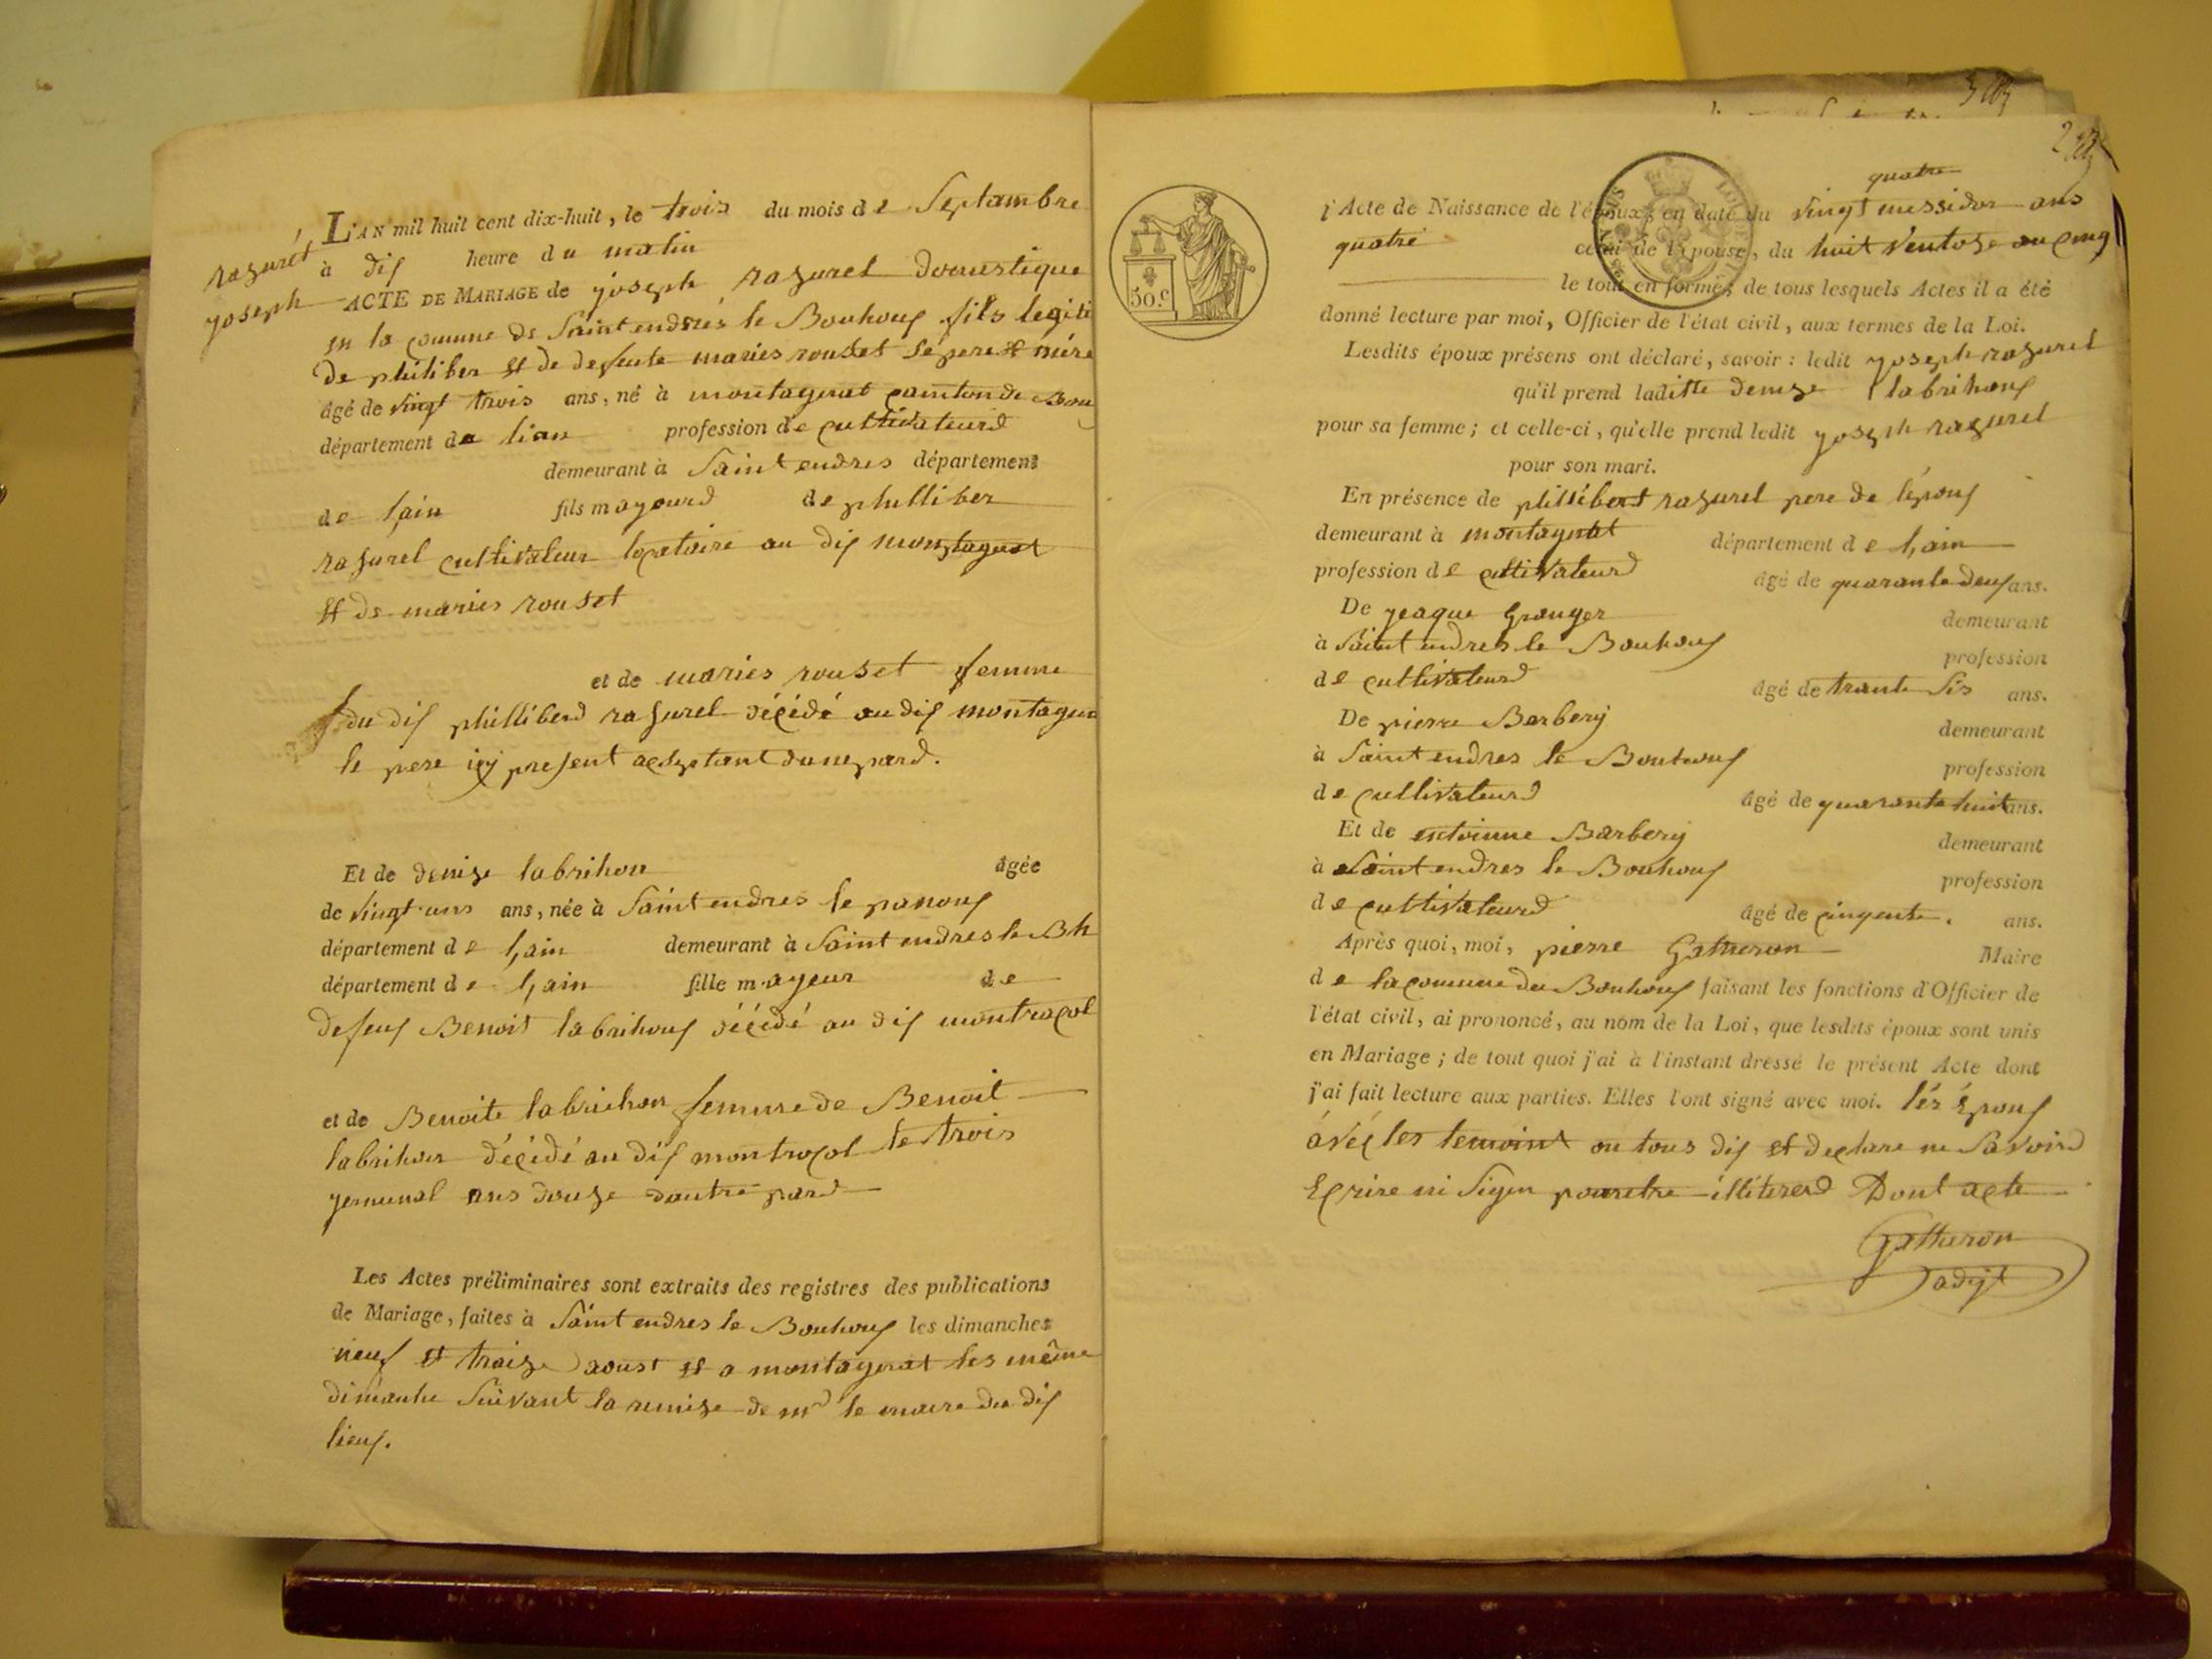 rasurel
joseph
L'AN mil huit cent dix-huit, le trois du mois de Septambre
à dix heure du matin
ACTE DE MARIAGE de joseph rasurel domestique
en la comune de Saint endrés le Bouhoux fils legiti
de philiber et de defunte maries rouset se pere et mére
âgé de vingt trois ans, né à montagnat cantonde Bou
département de lian profession de cultivateurd
demeurant à Saint endres département
de l,ain fils mayeurd de philliber
rasurel cultivateur locataire au dis montagnat
et de maries rouset
et de maries rouset femme
du dis philliberd rasurel décédé au dis montagna
le pere icy present aceptant dune pard.
Et de denise labrihon âgée
de vingt uns ans, née à Saint endres le panoux
département de l,ain demeurant à Saint endres le Bh
département de l,ain fille mayeur de
defeux Benoit labrihoux décédé au dis montracol
et de Benoite labrichon femme de Benoit
labrihon décédé au dis montracol le trois
jermenal ans douze dautre pard
Les Actes préliminaires sont extraits des registres des publications
de Mariage, faites à Saint endres le Bouhoux les dimanches
neuf et traize aoust et a montagnat les même
dimanhe Suivant la remise de mr le maire du dis
lieux.
50.c
quatre
l'Acte de Naissance de l'époux, en date du vingt messidor ans
quatre celui de l'épouse, du huit ventose an cinq
le tout en forme; de tous lesquels Actes il a été
donné lecture par moi, Officier de l'état civil, aux termes de la Loi.
Lesdits époux présens ont déclaré, savoir : ledit joseph rasurel
qu'il prend laditte denize labrihoux
pour sa femme ; et celle-ci, qu'elle prend ledit joseph rasurel
pour son mari.
En présence de phillibert rasurel pere de lépoux
demeurant à montagnat département de l,ain
profession de cultivateurd âgé de quarante deux ans.
De jeaque Granger demeurant
à Saint endres le Bouhoux profession
de cultivateurd âgé de trante Sis ans.
De pierre Barbery demeurant
à Saint endres le Bouhoux profession
de cultivateurd âgé de quarante huit ans.
Et de entoinne Barbery demeurant
à Saint endres le Bouhoux profession
de cultivateurd âgé de cinquente. ans.
Après quoi, moi, pierre Gatheron Maire
de la comune du Bouhoux faisant les fonctions d'Officier de
l'état civil, ai prononcé, au nom de la Loi, que lesdits époux sont unis
en Mariage ; de tout quoi j'ai à l'instant dressé le présent Acte dont
j'ai fait lecture aux parties. Elles l'ont signé avec moi. lés Époux
avéc les temoint on tous dis et declare ne Savoird
Ecrire ni Signer pouretre illitererd Dont acte
Gatheron
adijt